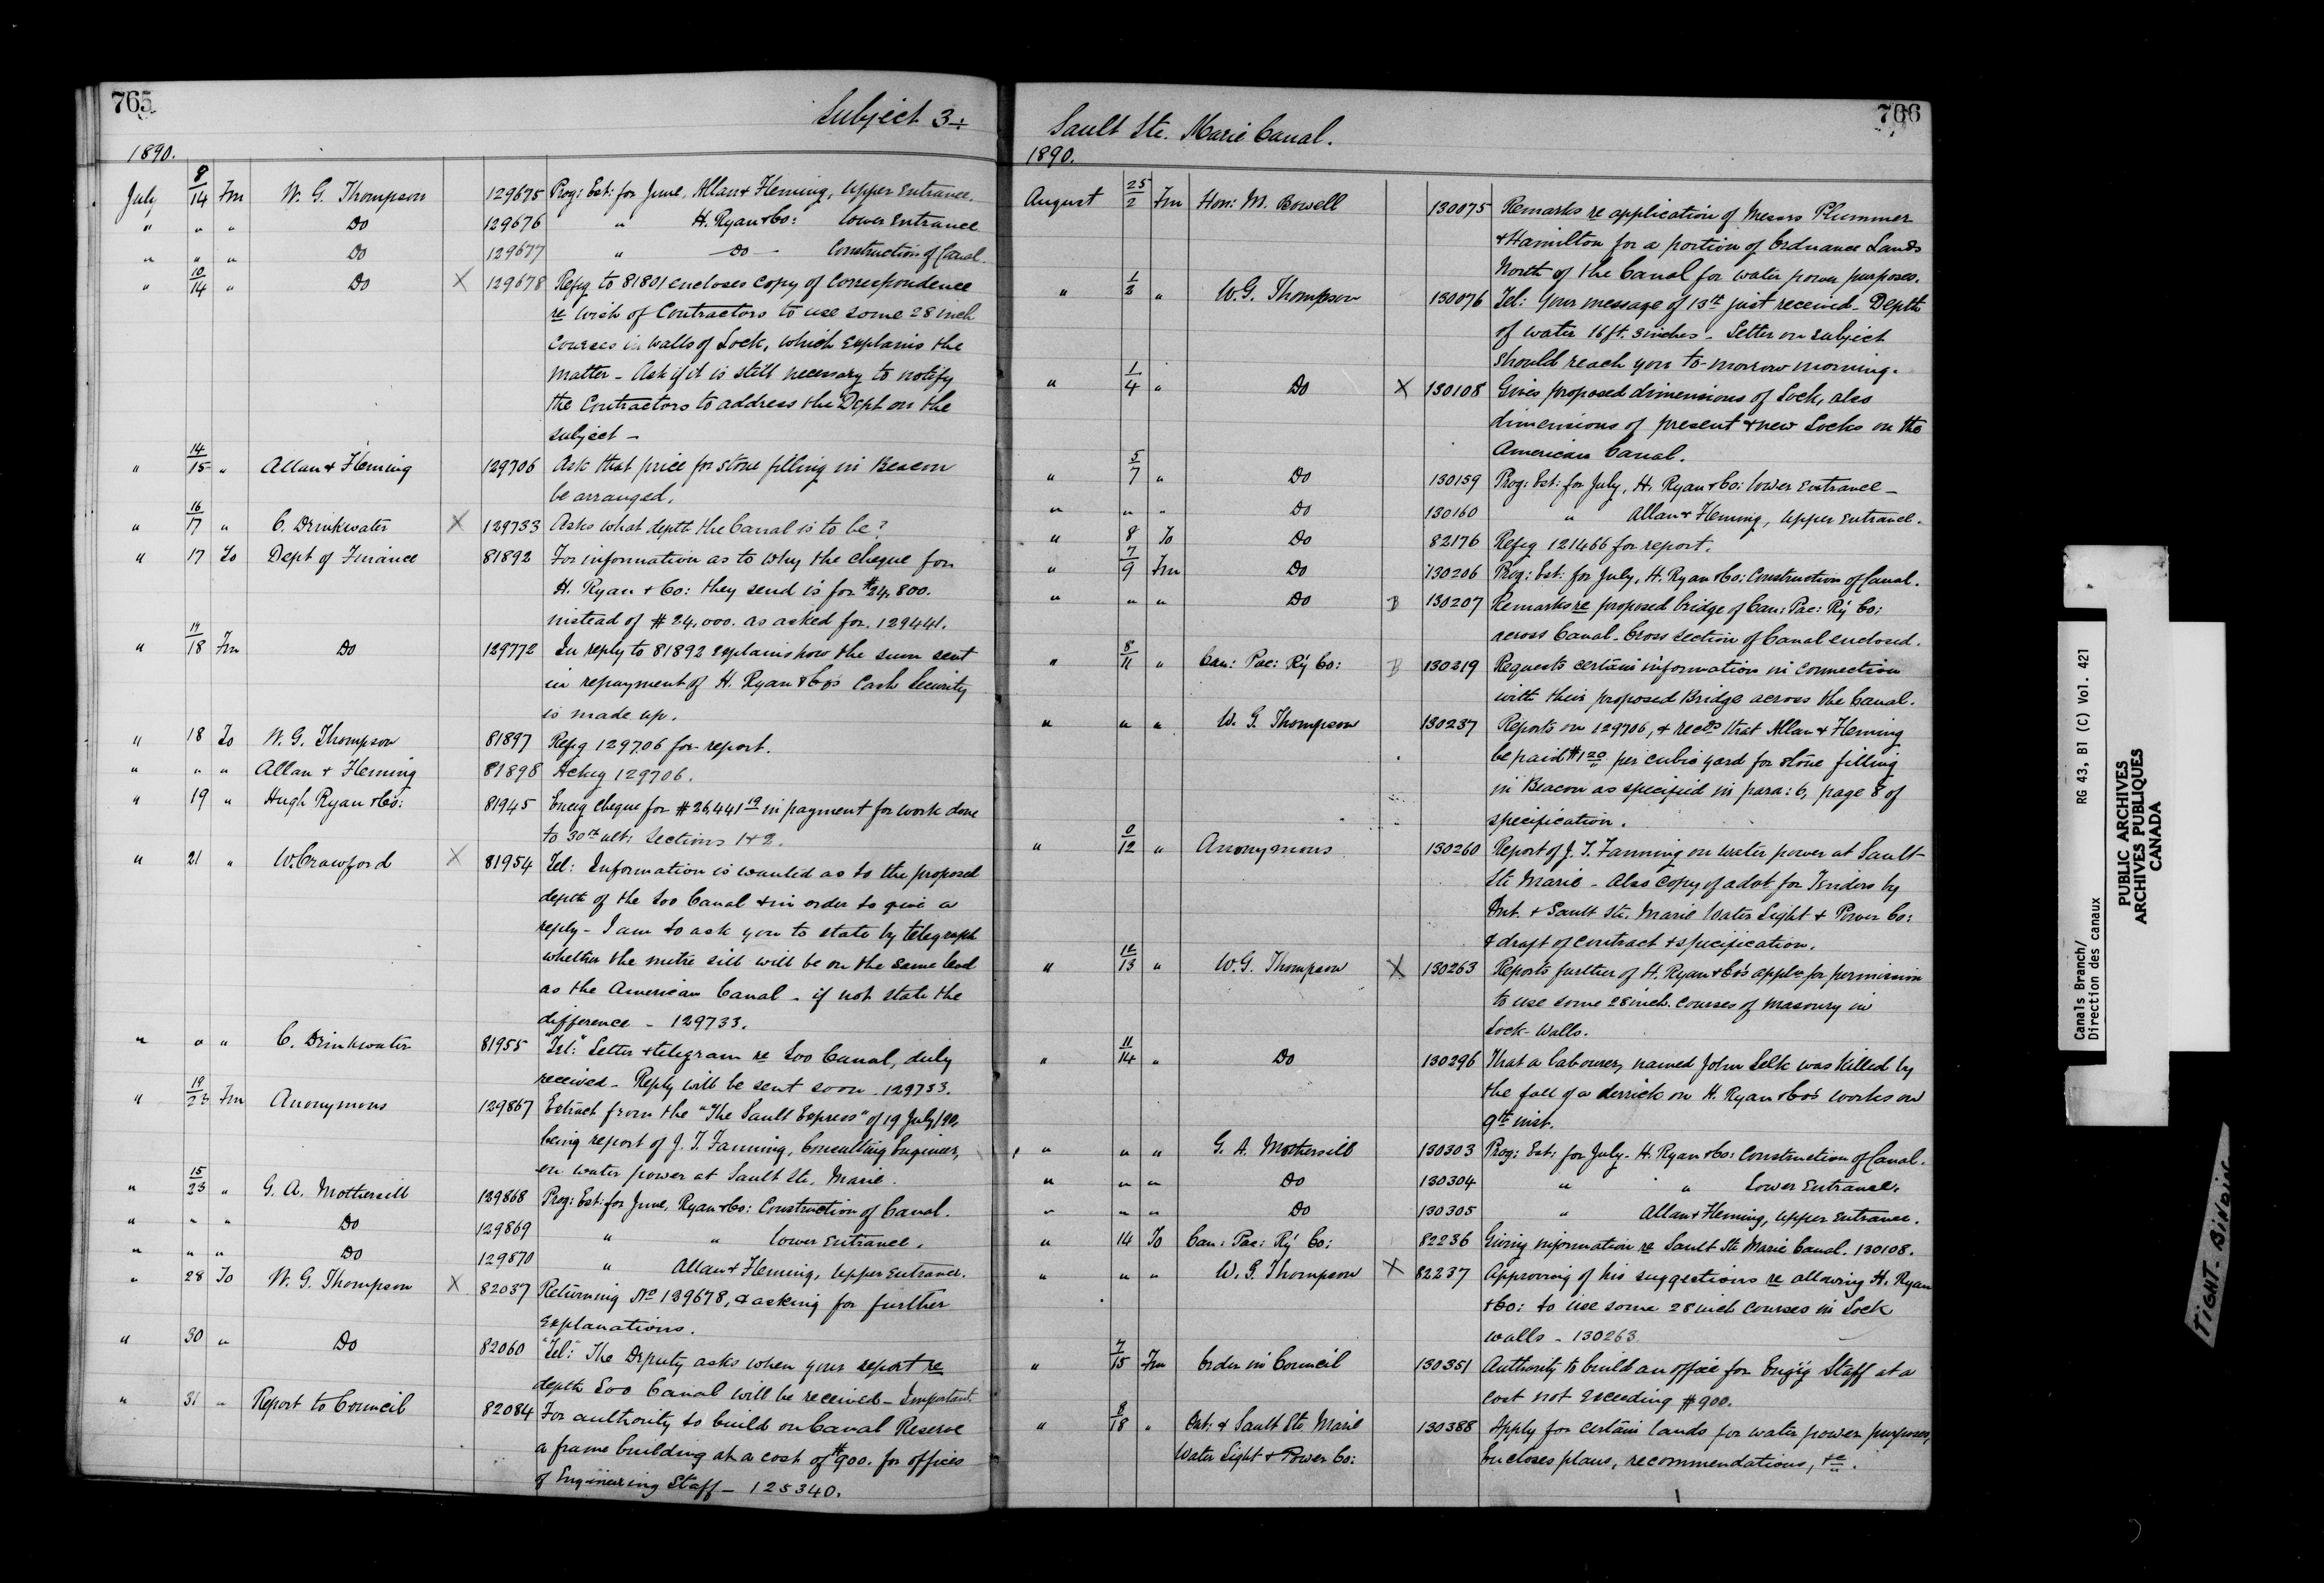 765
Subject 34
1890.
July 8/14 Fm W. G. Thompson 129675 Prog: Est: for June, Allan & Fleming, Upper Entrance.
" " " Do 129676 " H. Ryan & Co: Lower Entrance
" " " Do 129677 " Do Construction of Canal.
" 10/14 " Do X 129678 Refg to 81801 encloses copy of correspondence
re wish of Contractors to use some 28 inch
courses in walls of Lock, which explains the
matter - Ask if it is still necessary to notify
the Contractors to address the Dept on the
subject -
" 14/15 " Allan & Fleming 129706 Ask that price for stone filling in Beacon
be arranged.
" 16/17 " C. Drinkwater X 129733 Asks what depth the Canal is to be?
" 17 To Dept of Finance 81892 For information as to why the cheque for
H. Ryan & Co: they send is for $24,800.
instead of $24,000. as asked for. 129441.
" 17/18 Fm Do 129772 In reply to 81892 explains how the sum sent
in repayment of H. Ryan & Co's Cash Security
is made up.
" 18 To W. G. Thompson 81897 Refg 129706 for report.
" " " Allan & Fleming 81898 Ackg 129706.
" 19 " Hugh Ryan & Co: 81945 Encg cheque for $26,441 19 in payment for work done
to 30th ult: Sections 1 & 2.
" 21 " W. Crawford X 81954 Tel: Information is wanted as to the proposed
depth of the Soo Canal & in order to give a
reply - I am to ask you to state by telegraph
whether the mitre sill will be on the same level
as the American Canal - if not state the
difference - 129733.
" " " C. Drinkwater 81955 "Tel:" Letter & telegram re Soo Canal, duly
received - Reply will be sent soon. 129733.
" 19/23 Fm Anonymous 129867 Extract from the "The Sault Express" of 19 July/90,
being report of J. T. Fanning, Consulting Engineer,
on water power at Sault Ste. Marie.
" 15/23 " G. A. Mothersill 129868 Prog: Est: for June, Ryan & Co: Construction of Canal.
" " " Do 129869 " " Lower Entrance.
" " " Do 129870 " Allan & Fleming, Upper Entrance.
" 28 To W. G. Thompson X 82037 Returning No 129678, & asking for further
explanations.
" 30 " Do 82060 "Tel:" The Deputy asks when your report re
depth Soo Canal will be received - Important.
" 31 " Report to Council 82084 For authority to build on Canal Reserve
a frame building at a cost of $900. for offices
of Engineering Staff - 125340.
766
Sault Ste. Marie Canal.
1890.
August 25/2 Fm Hon: M. Bowell 130075 Remarks re application of Messrs Plummer
& Hamilton for a portion of Ordnance Lands
North of the Canal for water power purposes.
" 1/2 " W. G. Thompson 130076 Tel: Your message of 13th just received - Depth
of water 16 ft. 3 inches - Letter on subject
should reach you to-morrow morning.
" 1/4 " Do X 130108 Gives proposed dimensions of Lock, also
dimensions of present & new Locks on the
American Canal.
" 5/7 " Do 130159 Prog: Est: for July, H. Ryan & Co: Lower Entrance -
" " " Do 130160 " Allan & Fleming, Upper Entrance.
" 8 To Do 82176 Refg 121466 for report.
" 7/9 Fm Do 130206 Prog: Est: for July, H. Ryan & Co: Construction of Canal.
" " " Do B 130207 Remarks re proposed bridge of Can: Pac: Ry Co:
across Canal - Cross section of Canal enclosed.
" 8/11 " Can: Pac: Ry Co: B 130219 Requests certain information in connection
with their proposed Bridge across the Canal.
" " " W. G. Thompson 130237 Reports on 129706, & recds that Allan & Fleming
be paid $1 20 per cubic yard for stone filling
in Beacon as specified in para: 6, page 8 of
specification.
" 0/12 " Anonymous 130260 Report of J. T. Fanning on water power at Sault
Ste Marie - Also copy of advt for Tenders by
Ont. & Sault Ste. Marie Water Light & Power Co:
& draft of contract & specification.
" 12/13 " W. G. Thompson X 130263 Reports further of H. Ryan & Co's appln for permission
to use some 28 inch courses of masonry in
Lock-Walls.
" 11/14 " Do 130296 That a labourer, named John Selk was killed by
the fall of a derrick on H. Ryan & Co's works on
9th inst.
" " " G. A. Mothersill 130303 Prog: Est: for July - H. Ryan & Co: Construction of Canal.
" " " Do 130304 " " Lower Entrance.
" " " Do 130305 " Allan & Fleming, Upper Entrance.
" 14 To Can: Pac: Ry Co: 82236 Giving information re Sault Ste Marie Canal. 130108.
" " " W. G. Thompson X 82237 Approving of his suggestions re allowing H. Ryan
& Co: to use some 28 inch courses in Lock
walls - 130263.
" 7/15 Fm Order in Council 130351 Authority to build an office for Eng'g Staff at a
cost not exceeding $900.
" 8/18 " Ont. & Sault Ste Marie 130388 Apply for certain lands for water power purposes,
Water Light & Power Co: Encloses plans, recommendations, &c.
Canals Branch/
Direction des canaux
RG 43, B1 (C) Vol. 421
PUBLIC ARCHIVES
ARCHIVES PUBLIQUES
CANADA
TIGHT BINDING